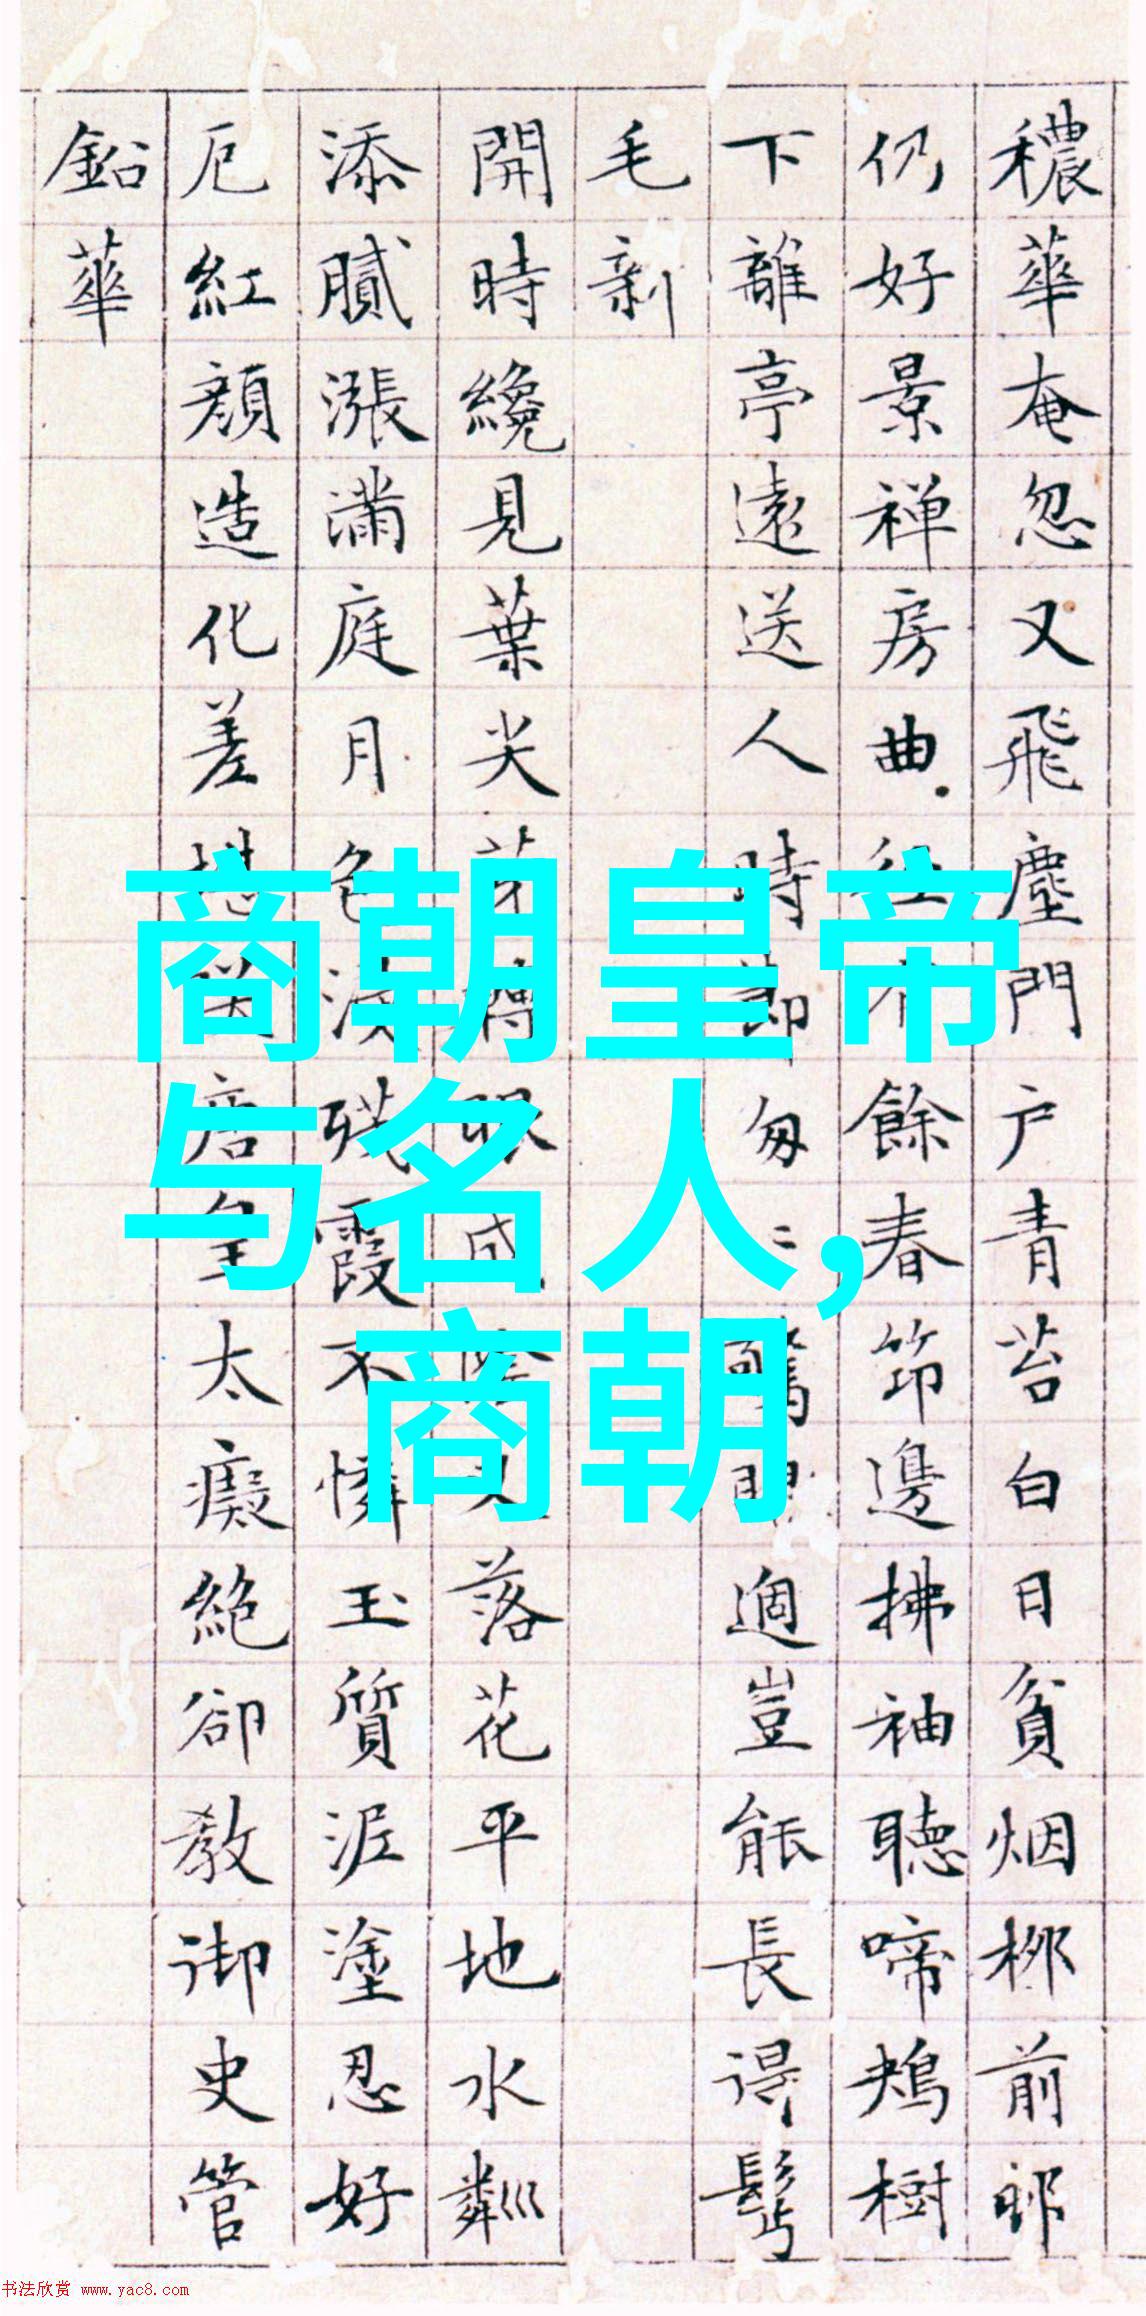 穠華奄忽又飛塵門戶青苔白日貧烟柳前邨
仍好景禅房曲餘春笻邊拂袖聽啼鴂樹
下離亭遠送人時節匆二驚適豈能長得鬓
毛新
開時纔見葉尖芽落花平地水粼巛
添膩漲滿庭月色殘霞不憐玉質泥塗忍好
厄紅顏造化差太癡絕卻教御史管
鉛華
商朝皇帝
与名人,
商朝
书法欣赏 www.yac8.com